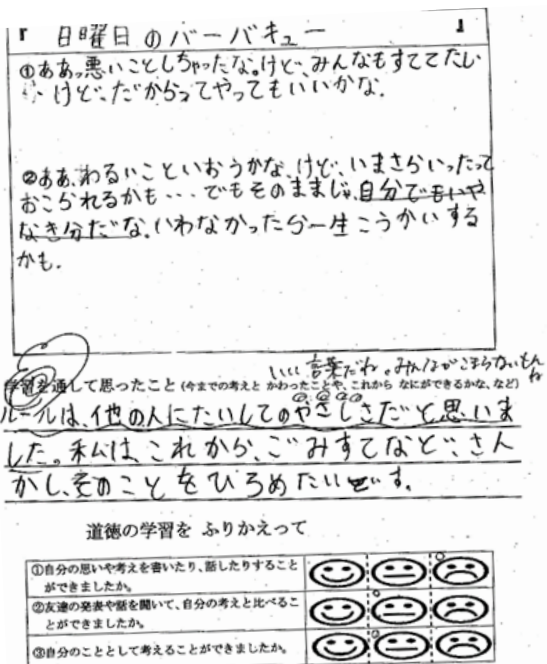 『 日曜日のバーバキュー 』
①ああっ悪いことしちゃったな。けど、みんなもすててたし
、けど、だからってやってもいいかな.
②ああ、わるいこといおうかな、けど、いまさらいったって
おこられるかも・・・でもそのままじゃ、自分でもいや
なき分だな、いわなかったら一生こうかいする
かも.
いいい言葉だね。みんながこまらないもんね
学習を通して思ったこと(今までの考えと かわったことや、これから なにができるかな、など)
ルールは、他の人にたいしてのやさしさだと思いま
した。私は、これから、ごみすてなど、さん
かし、そのことをひろめたいです。
道徳の学習を ふりかえって
①自分の思いや考えを書いたり、話したりすること
ができましたか。
②友達の発表や話を聞いて、自分の考えと比べるこ
とができましたか。
③自分のこととして考えることができましたか。